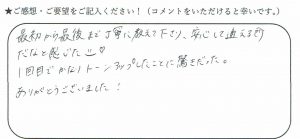 ★ご感想・ご要望をご記入ください！（コメントをいただけると幸いです。）
最初から最後まで丁寧に教えて下さり、安心して通える所
だなと感じた
1回目でかなりトーンアップしたことに驚きだった。
ありがとうございました！